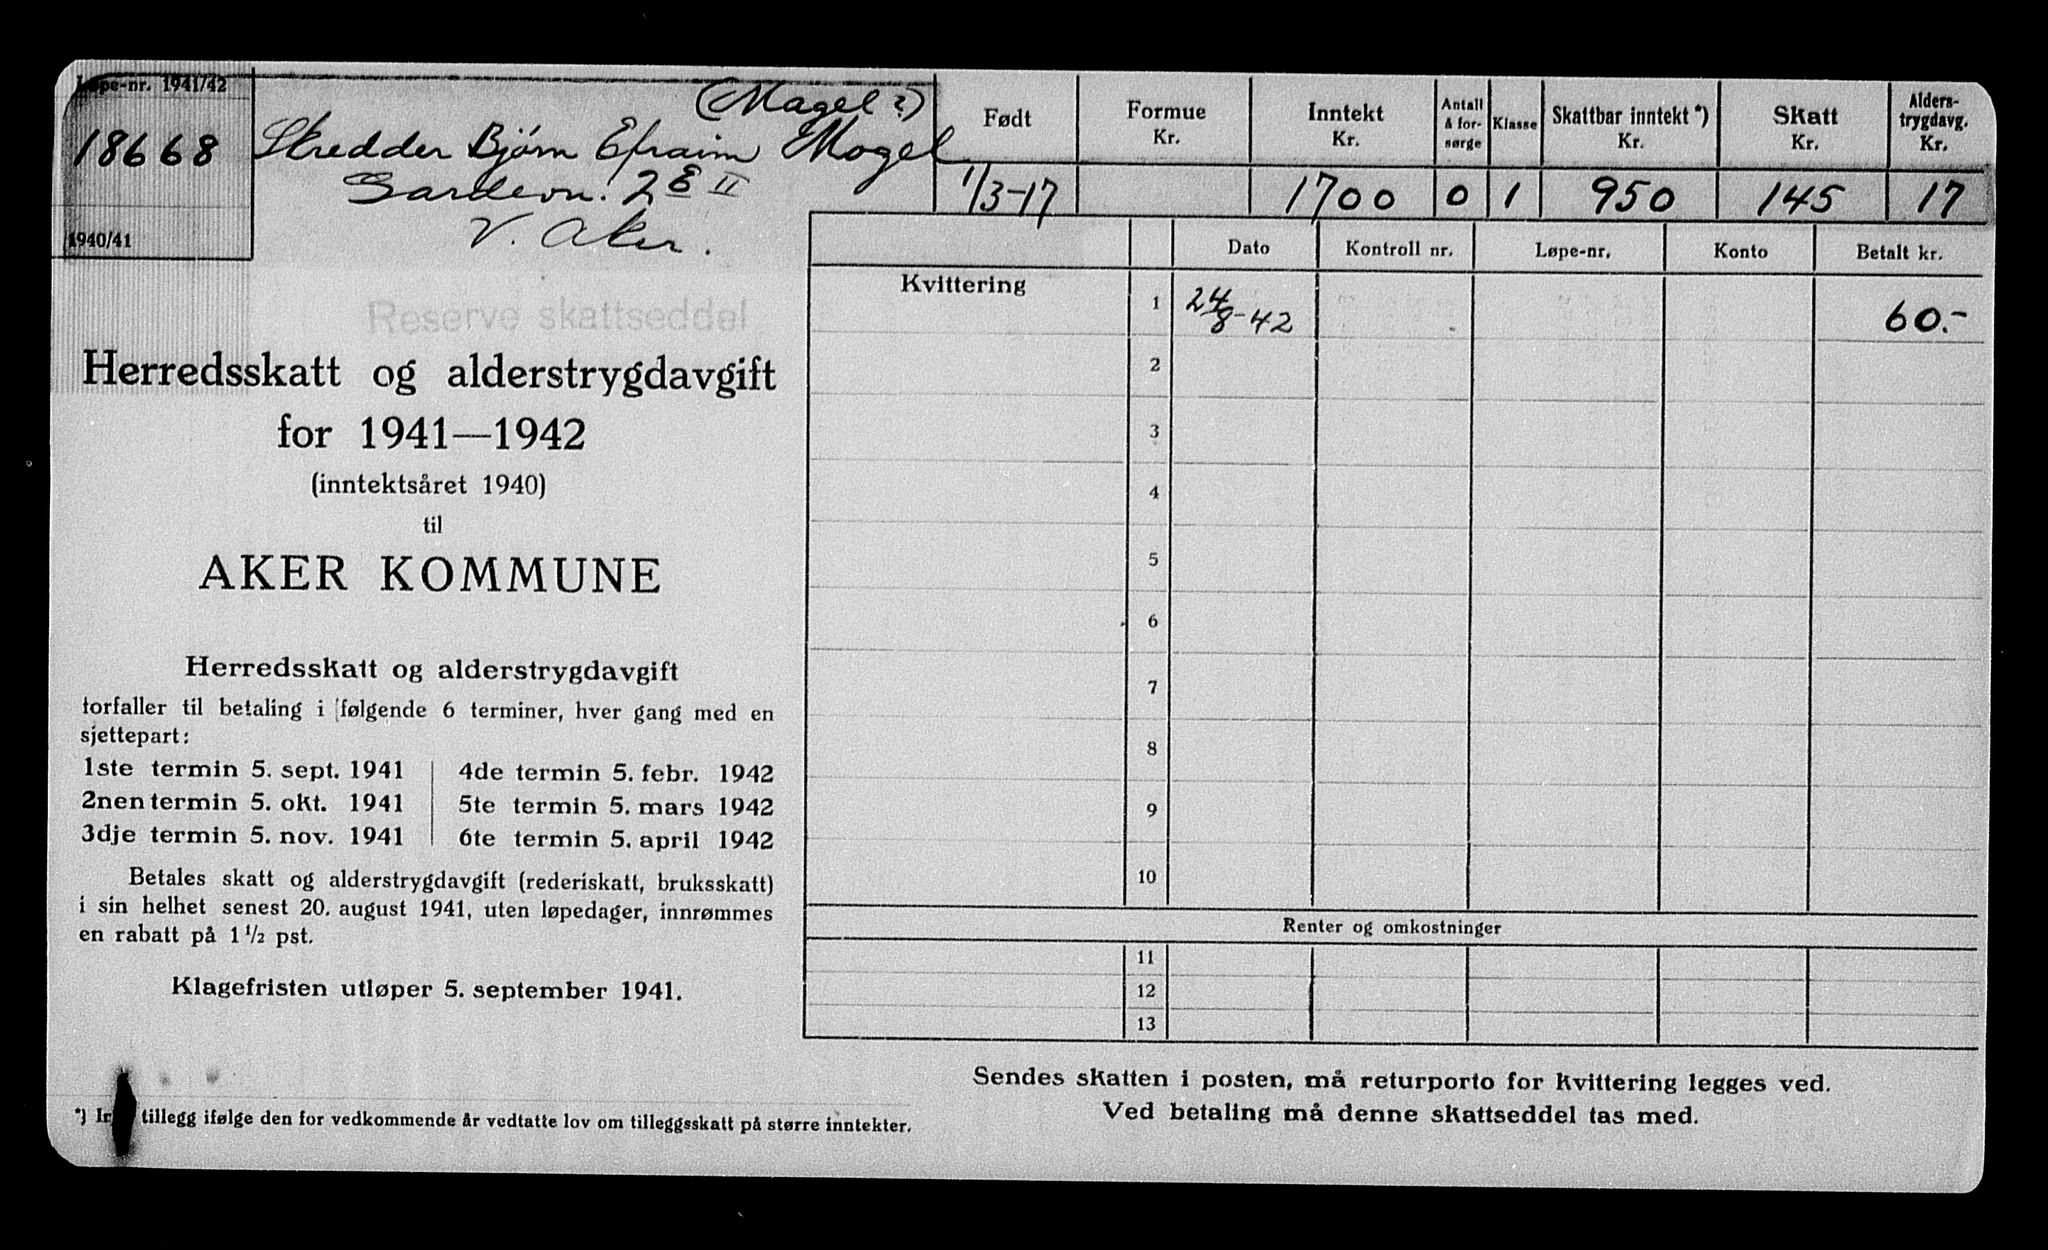 Løpe-nr. 1941/42
18668
1940/41
(Magel?)
Skredder Bjørn Efraim Mogel
2 E II
V. Aker.
Født
Formue Kr.
Inntekt Kr.
Antall å forsørge
Klasse
Skattbar inntekt *) Kr.
Skatt Kr.
Alderstrygdavg. Kr.
1/3-17
1700
0
1
950
145
17
Reserve skattseddel
Herredsskatt og alderstrygdavgift
for 1941—1942
(inntektsåret 1940)
til
AKER KOMMUNE
Herredsskatt og alderstrygdavgift
forfaller til betaling i følgende 6 terminer, hver gang med en
sjettepart:
1ste termin 5. sept. 1941 | 4de termin 5. febr. 1942
2nen termin 5. okt. 1941 | 5te termin 5. mars 1942
3dje termin 5. nov. 1941 | 6te termin 5. april 1942
Betales skatt og alderstrygdavgift (rederiskatt, bruksskatt)
i sin helhet senest 20. august 1941, uten løpedager, innrømmes
en rabatt på 1 1/2 pst.
Klagefristen utløper 5. september 1941.
*) tillegg ifølge den for vedkommende år vedtatte lov om tilleggsskatt på større inntekter.
Dato Kontroll nr. Løpe-nr. Konto Betalt kr.
Kvittering
1 24/8-42 60.-
2
3
4
5
6
7
8
9
10
Renter og omkostninger
11
12
13
Sendes skatten i posten, må returporto for kvittering legges ved.
Ved betaling må denne skattseddel tas med.